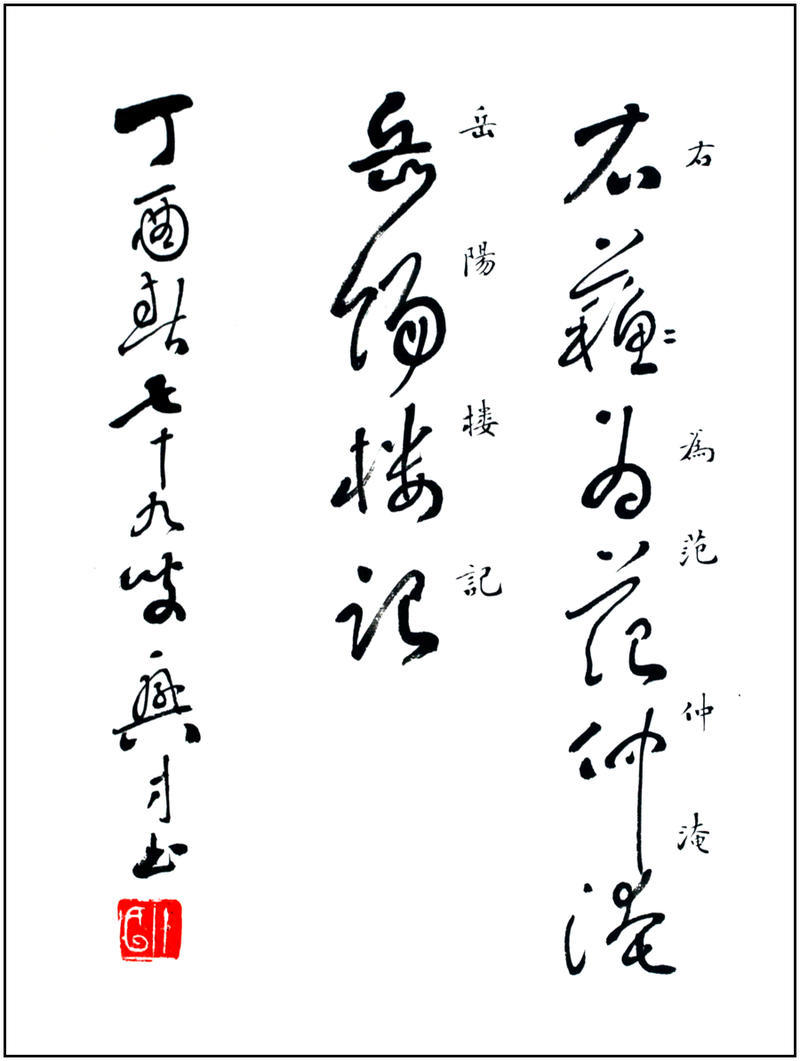 右
為
范
仲
淹
右為范仲淹
岳
陽
楼
記
岳陽楼記
丁酉春七十九叟興才书